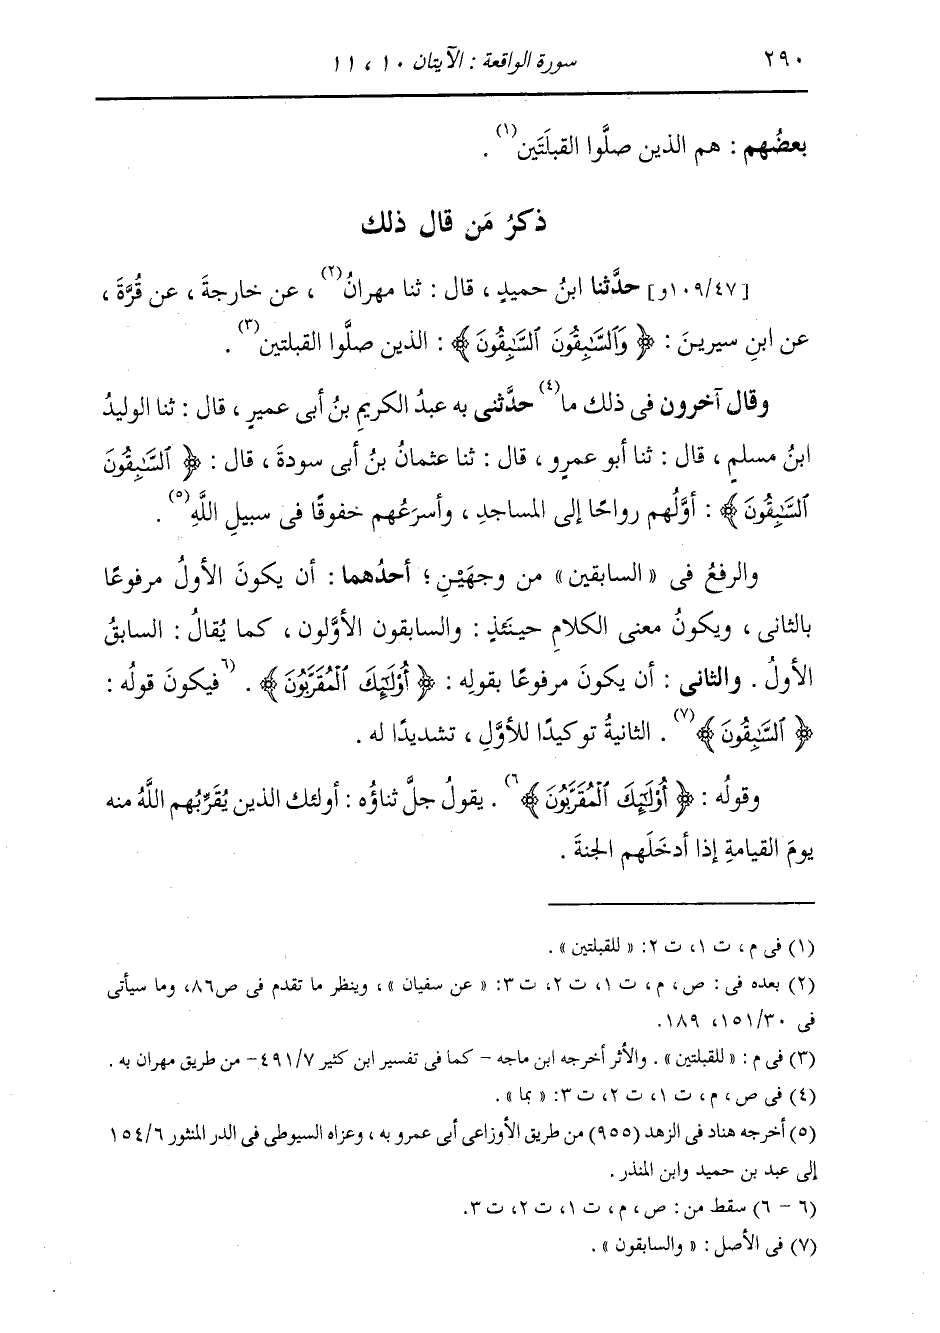 ٢٩٠ سورة الواقعة : الآيتان ١٠ ، ١١
بعضُهم : هم الذين صلَّوا القبلَتَين(١) .
ذكرُ مَن قال ذلك
[١٠٩/٤٧و] حدَّثنا ابنُ حميدٍ ، قال : ثنا مهرانُ(٢) ، عن خارجةَ ، عن قُرَّةَ ،
عن ابنِ سيرينَ : ﴿ وَٱلسَّٰبِقُونَ ٱلسَّٰبِقُونَ ﴾ : الذين صلَّوا القبلتين(٣) .
وقال آخرون فى ذلك ما(٤) حدَّثنى به عبدُ الكريمِ بنُ أبى عميرٍ ، قال : ثنا الوليدُ
ابنُ مسلمٍ ، قال : ثنا أبو عمرٍو ، قال : ثنا عثمانُ بنُ أبى سودةَ ، قال : ﴿ ٱلسَّٰبِقُونَ
ٱلسَّٰبِقُونَ ﴾ : أوَّلُهم رواحًا إلى المساجدِ ، وأسرَعُهم خفوقًا فى سبيلِ اللَّهِ(٥) .
والرفعُ فى « السابقين » من وجهَيْنِ ؛ أحدُهما : أن يكونَ الأولُ مرفوعًا
بالثانى ، ويكونُ معنى الكلامِ حينَئذٍ : والسابقون الأوَّلون ، كما يُقالُ : السابقُ
الأولُ . والثانى : أن يكونَ مرفوعًا بقولِه : ﴿ أُوْلَٰٓئِكَ ٱلْمُقَرَّبُونَ ﴾ . (٦فيكونَ قولُه :
﴿ ٱلسَّٰبِقُونَ ﴾(٧) . الثانيةُ توكيدًا للأوَّلِ ، تشديدًا له .
وقولُه : ﴿ أُوْلَٰٓئِكَ ٱلْمُقَرَّبُونَ ﴾٦) . يقولُ جلَّ ثناؤُه : أولئك الذين يُقَرِّبُهم اللَّهُ منه
يومَ القيامةِ إذا أدخَلَهم الجنةَ .
(١) فى م ، ت ١، ت ٢: « للقبلتين » .
(٢) بعده فى : ص ، م ، ت ١، ت ٢، ت ٣: « عن سفيان » ، وينظر ما تقدم فى ص٨٦، وما سيأتى
فى ١٥١/٣٠، ١٨٩.
(٣) فى م : « للقبلتين » . والأثر أخرجه ابن ماجه - كما فى تفسير ابن كثير ٤٩١/٧- من طريق مهران به .
(٤) فى ص ، م ، ت ١، ت ٢، ت ٣: « بما » .
(٥) أخرجه هناد فى الزهد (٩٥٥) من طريق الأوزاعى أبى عمرو به ، وعزاه السيوطى فى الدر المنثور ١٥٤/٦
إلى عبد بن حميد وابن المنذر .
(٦ - ٦) سقط من : ص ، م ، ت ١، ت ٢، ت ٣.
(٧) فى الأصل : « والسابقون » .